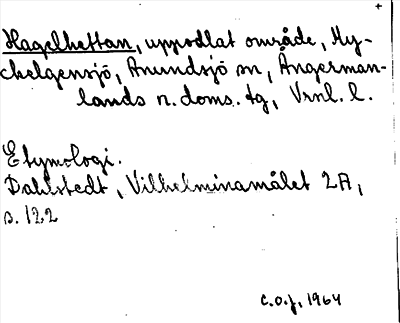 Hagelhettan, uppodlat område, My-
ckelgensjö, Anundsjö sn, Ångerman-
lands n. doms. tg, Vrnl. l.
Etymologi.
Dahlstedt, Vilhelminamålet 2A,
s. 122
C.O.J, 1964